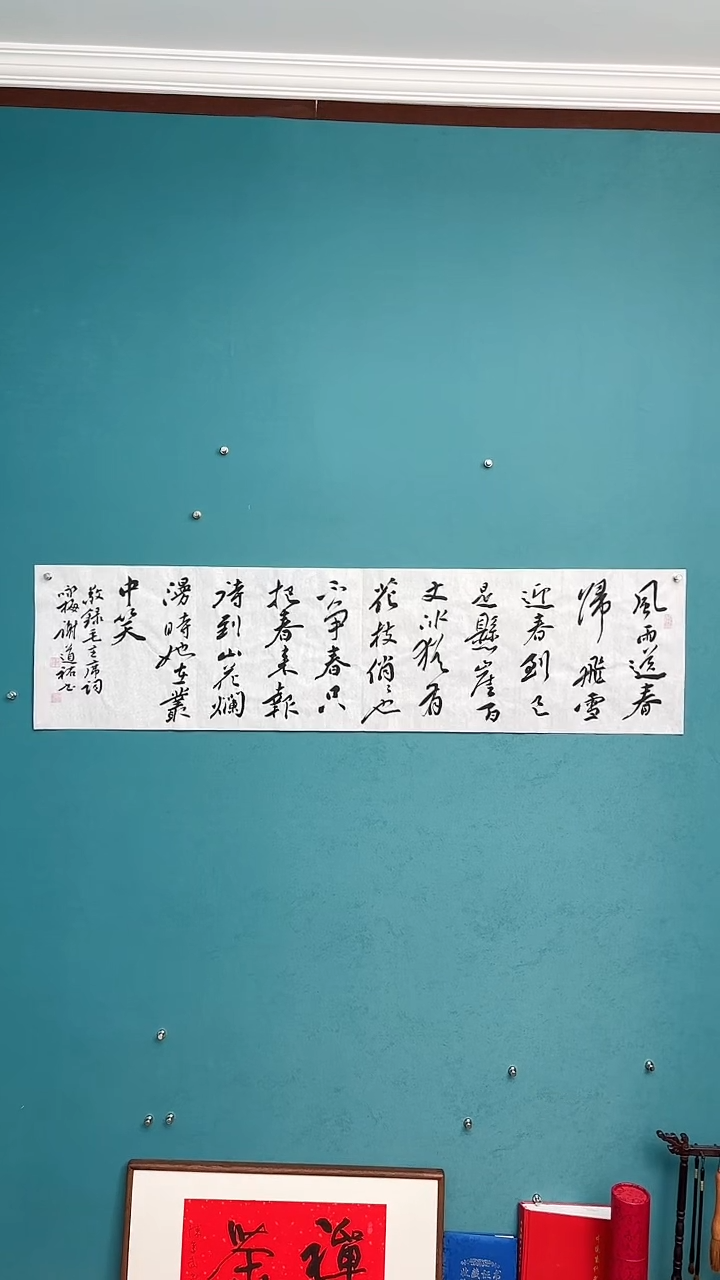 風雨送春
歸飛雪
迎春到已
是懸崖百
丈冰猶有
花枝俏〻也
不爭春只
把春來報
待到山花爛
漫時她在叢
中笑
敬録毛主席詞
咏梅 謝道祐书
禪茶
收藏证书